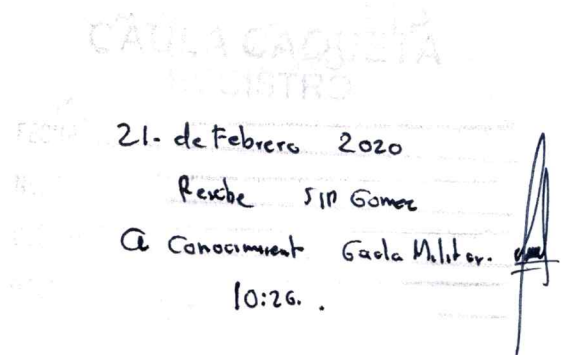 CAULA CAQUETA
21- de Febrero 2020
Recibe SIP Gomez
a Conocimient Gaola Militar.
10:26.